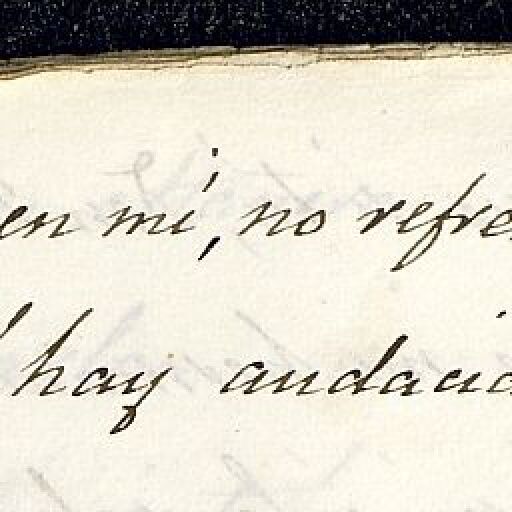 en mí, no refre
hay audacia